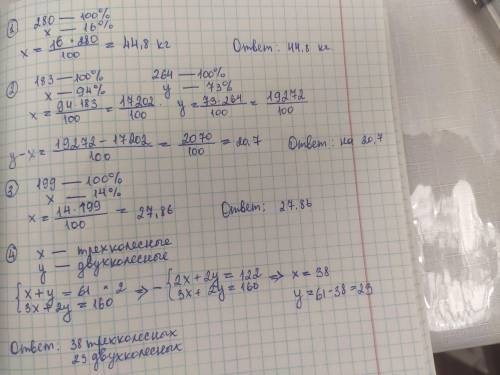 ① 280 — 100%
x — 16%
x = 16 · 280 / 100 = 44,8 кг Ответ: 44,8 кг
② 183 — 100% 264 — 100%
x — 94% y — 73%
x = 94 · 183 / 100 = 17202 / 100 . y = 73 · 264 / 100 = 19272 / 100
y - x = 19272 - 17202 / 100 = 2070 / 100 = 20,7 Ответ: на 20,7
③ 199 — 100%
x — 14%
x = 14 · 199 / 100 = 27,86 Ответ: 27,86
④ x — трехколесные
y — двухколесные
{ x + y = 61 · 2 ⇒ - { 2x + 2y = 122 ⇒ x = 38
3x + 2y = 160 3x + 2y = 160 y = 61 - 38 = 23
Ответ: 38 трехколесных
23 двухколесных